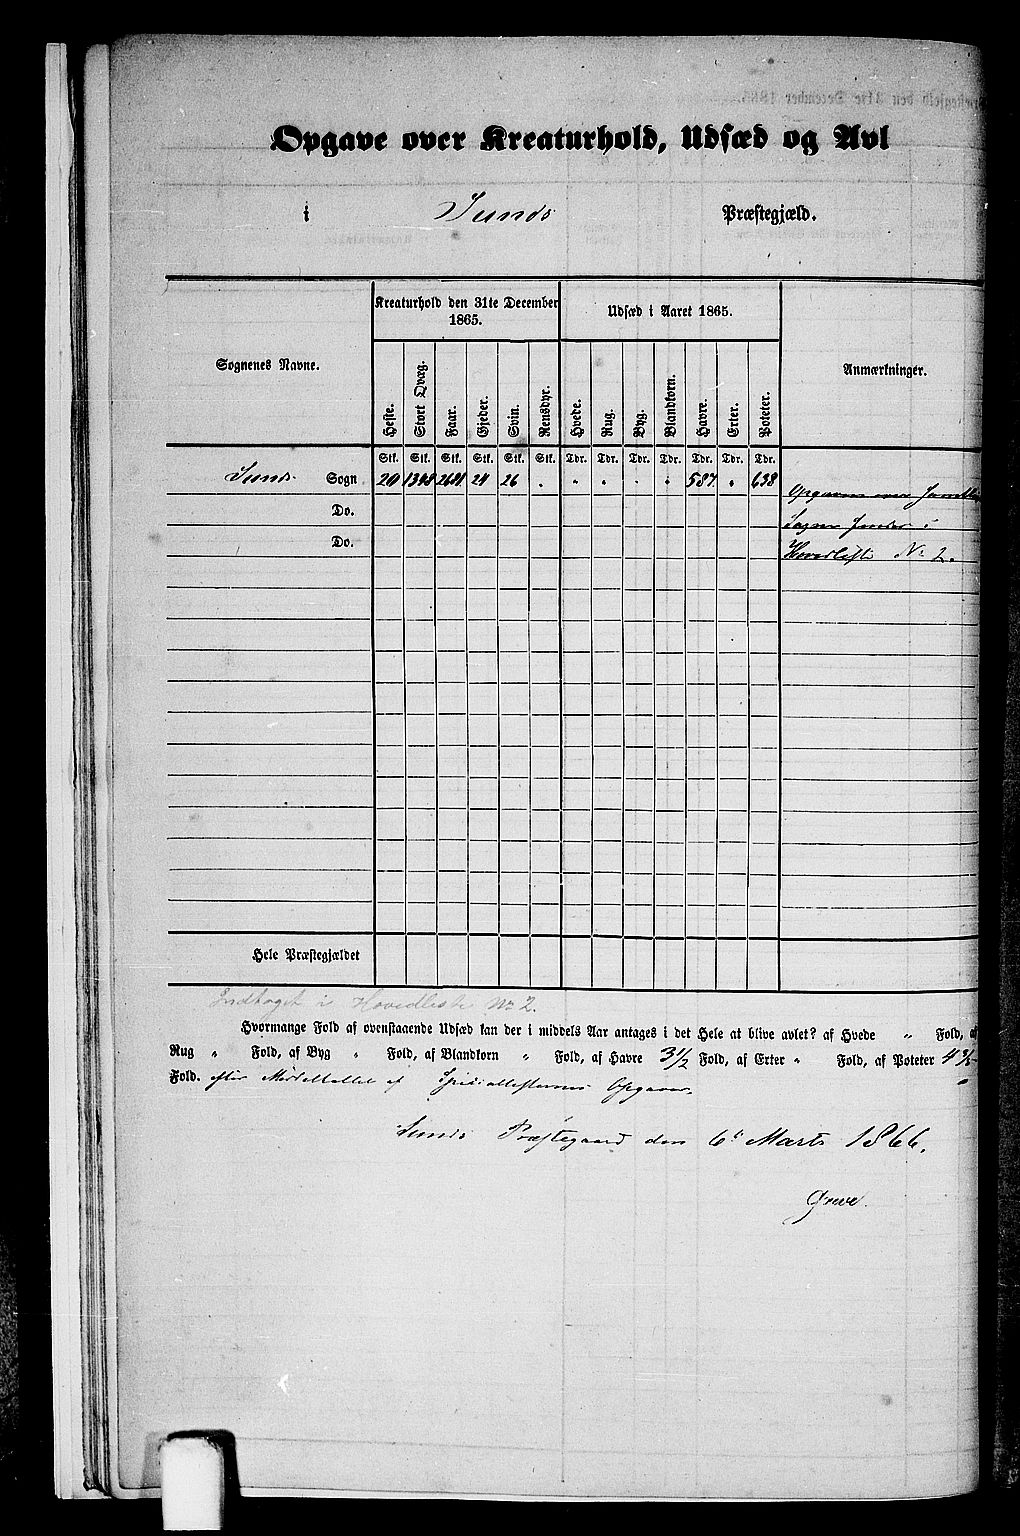 Opgave over Kreaturhold, Udsæd og Avl
i Sunds Præstegjæld.
Sognenes Navne.
Kreaturhold den 31te December 1865.
Udsæd i Aaret 1865.
Anmærkninger.
Heste. Stort Qvæg. Faar. Gjeder. Svin. Rensdyr. Hvede. Rug. Byg. Blandkorn. Havre. Erter. Poteter.
Stk. Stk. Stk. Stk. Stk. Stk. Tdr. Tdr. Tdr. Tdr. Tdr. Tdr. Tdr.
Sunds Sogn 20 24 26 . " " . " 587 " 638
Opgaven over
Do.
Sogn i
Do.
Hovedliste No 2.
Hele Præstegjældet
Indtaget i Hovedliste No 2.
Hvormange Fold af ovenstaaende Udsæd kan der i middels Aar antages i det Hele at blive avlet? af Hvede " Fold, af
Rug " Fold, af Byg " Fold, af Blandkorn " Fold, af Havre 3½ Fold, af Erter " Fold, af Poteter
Fold. efter Middeltallet af Speciallisternes Opgaver.
Sunds Præstegaard den 6te Marts 1866.
Greve.